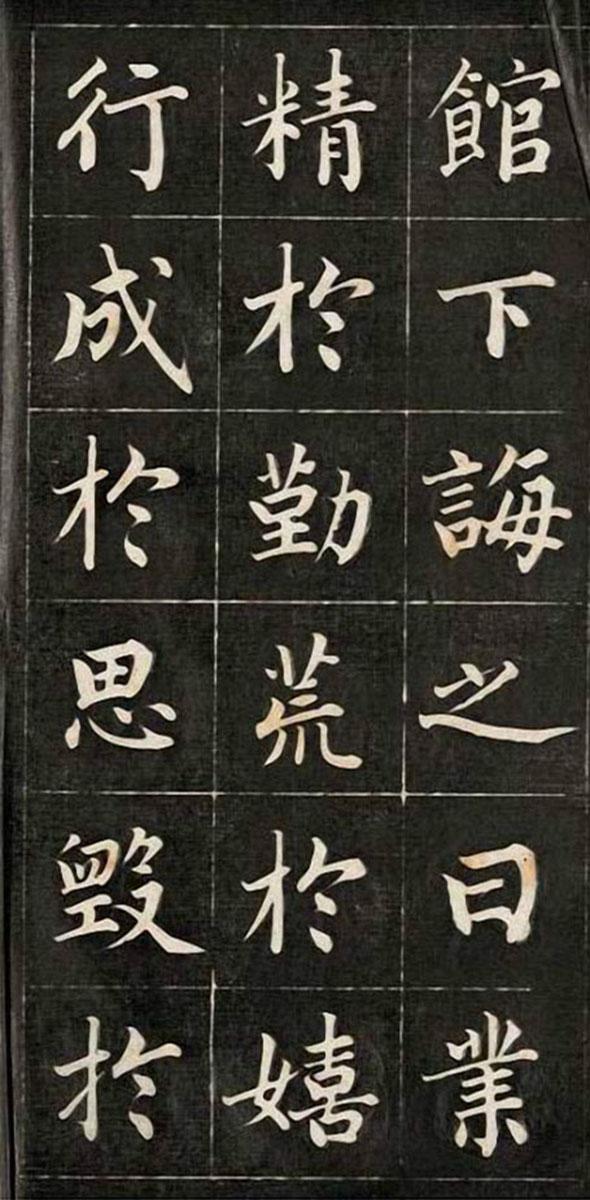 館下誨之曰業
精於勤荒於嬉
行成於思毀於